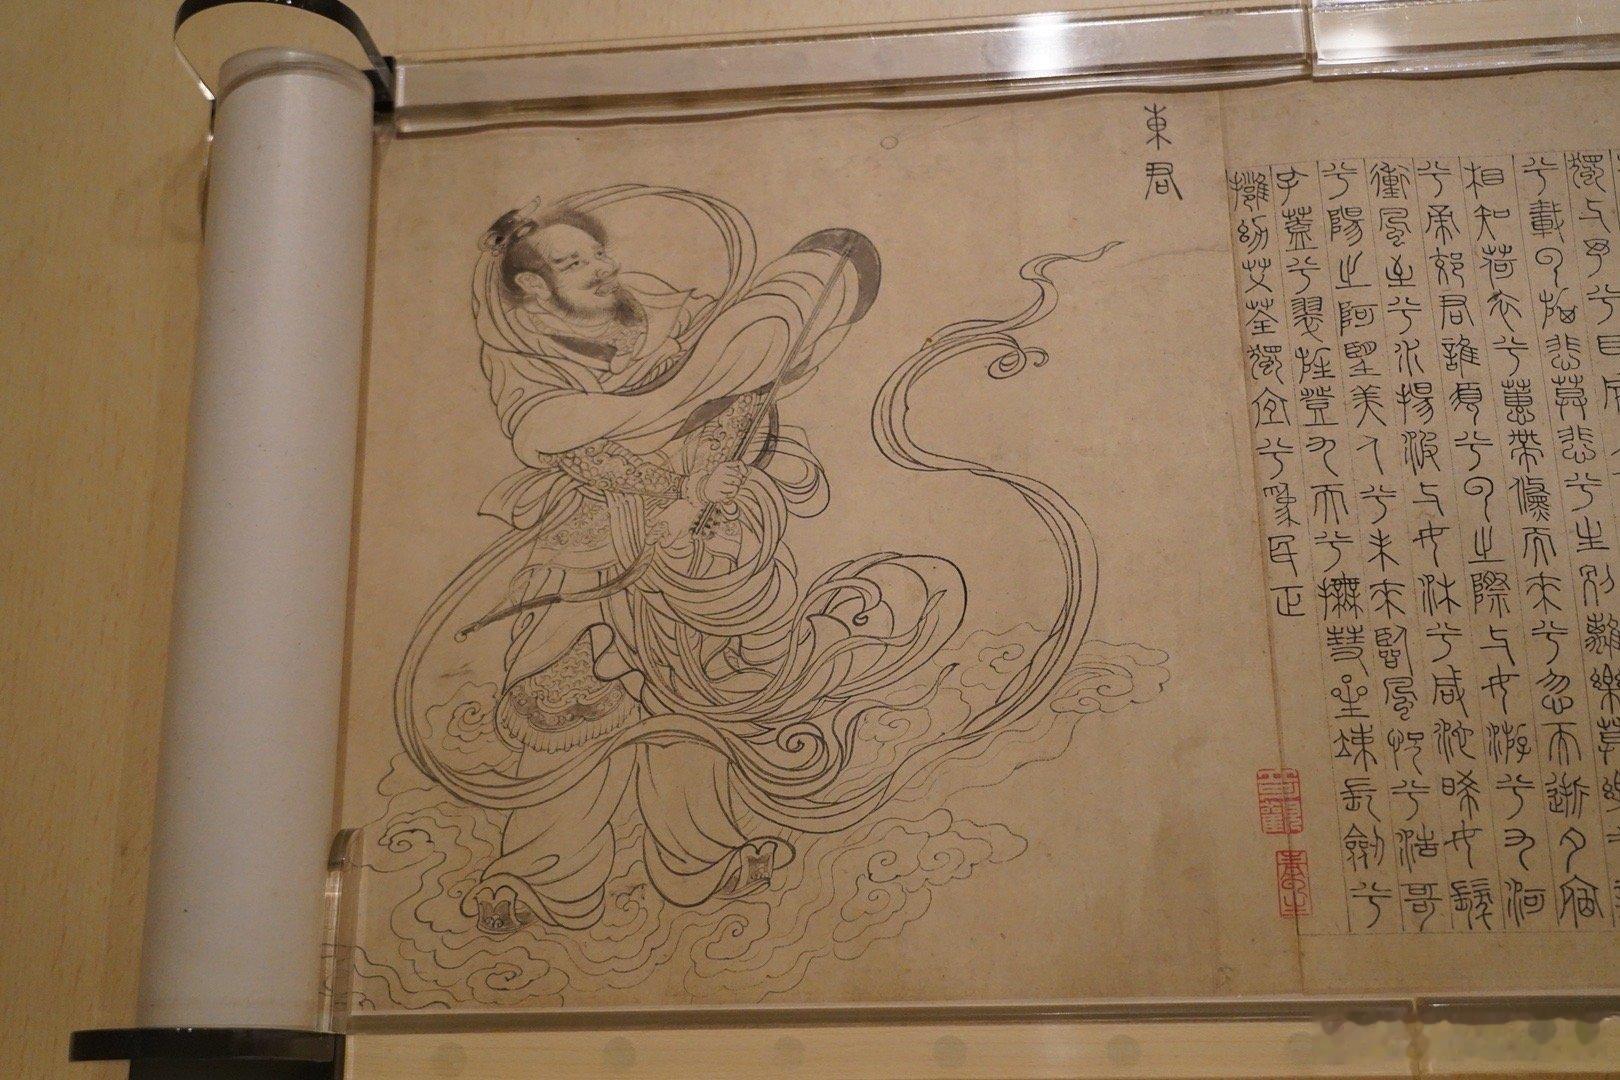 獨与予兮目
兮載云旗悲莫悲兮生別離樂莫
相知荷衣兮蕙帶儵而來兮忽而逝夕宿
兮帝郊君誰須兮云之際与女游兮九河
衝風至兮水揚波与女沐兮咸池晞女髮
兮陽之阿望美人兮未來臨風怳兮浩哥
孔蓋兮翠旌登九天兮撫彗星竦長劍兮
擁幼艾荃獨宜兮為民正
東君